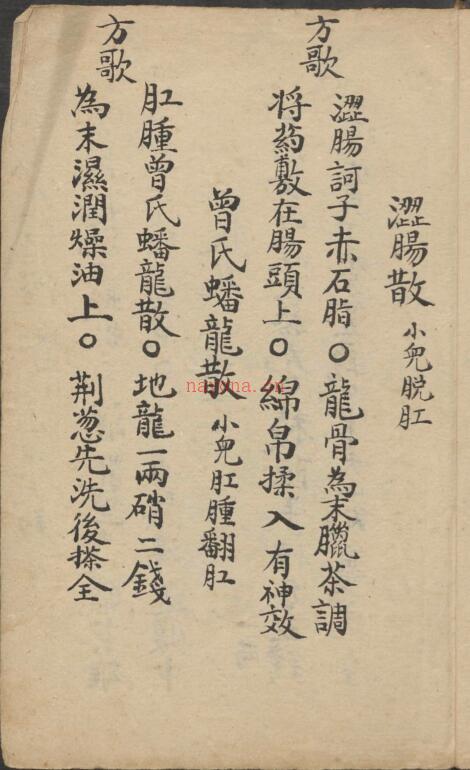 澀腸散 小兒脫肛
方歌
澀腸訶子赤石脂〇龍骨為末臘茶調
将葯敷在腸頭上〇綿帛揉入有神效
曾氏蟠龍散 小兒肛腫翻肛
方歌
肛腫曾氏蟠龍散〇地龍一兩硝二錢
為末濕潤燥油上〇荆葱先洗後搽全